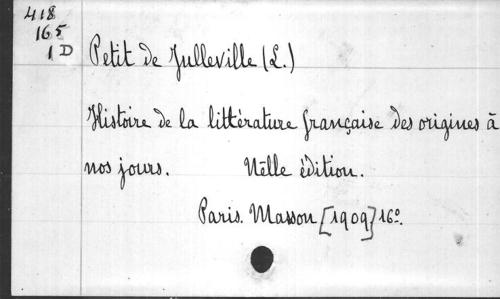 418
165
1 D
Petit de Julleville (L.)
Histoire de la littérature française des origines à
nos jours. Nelle édition.
Paris. Masson [1909] 16º.